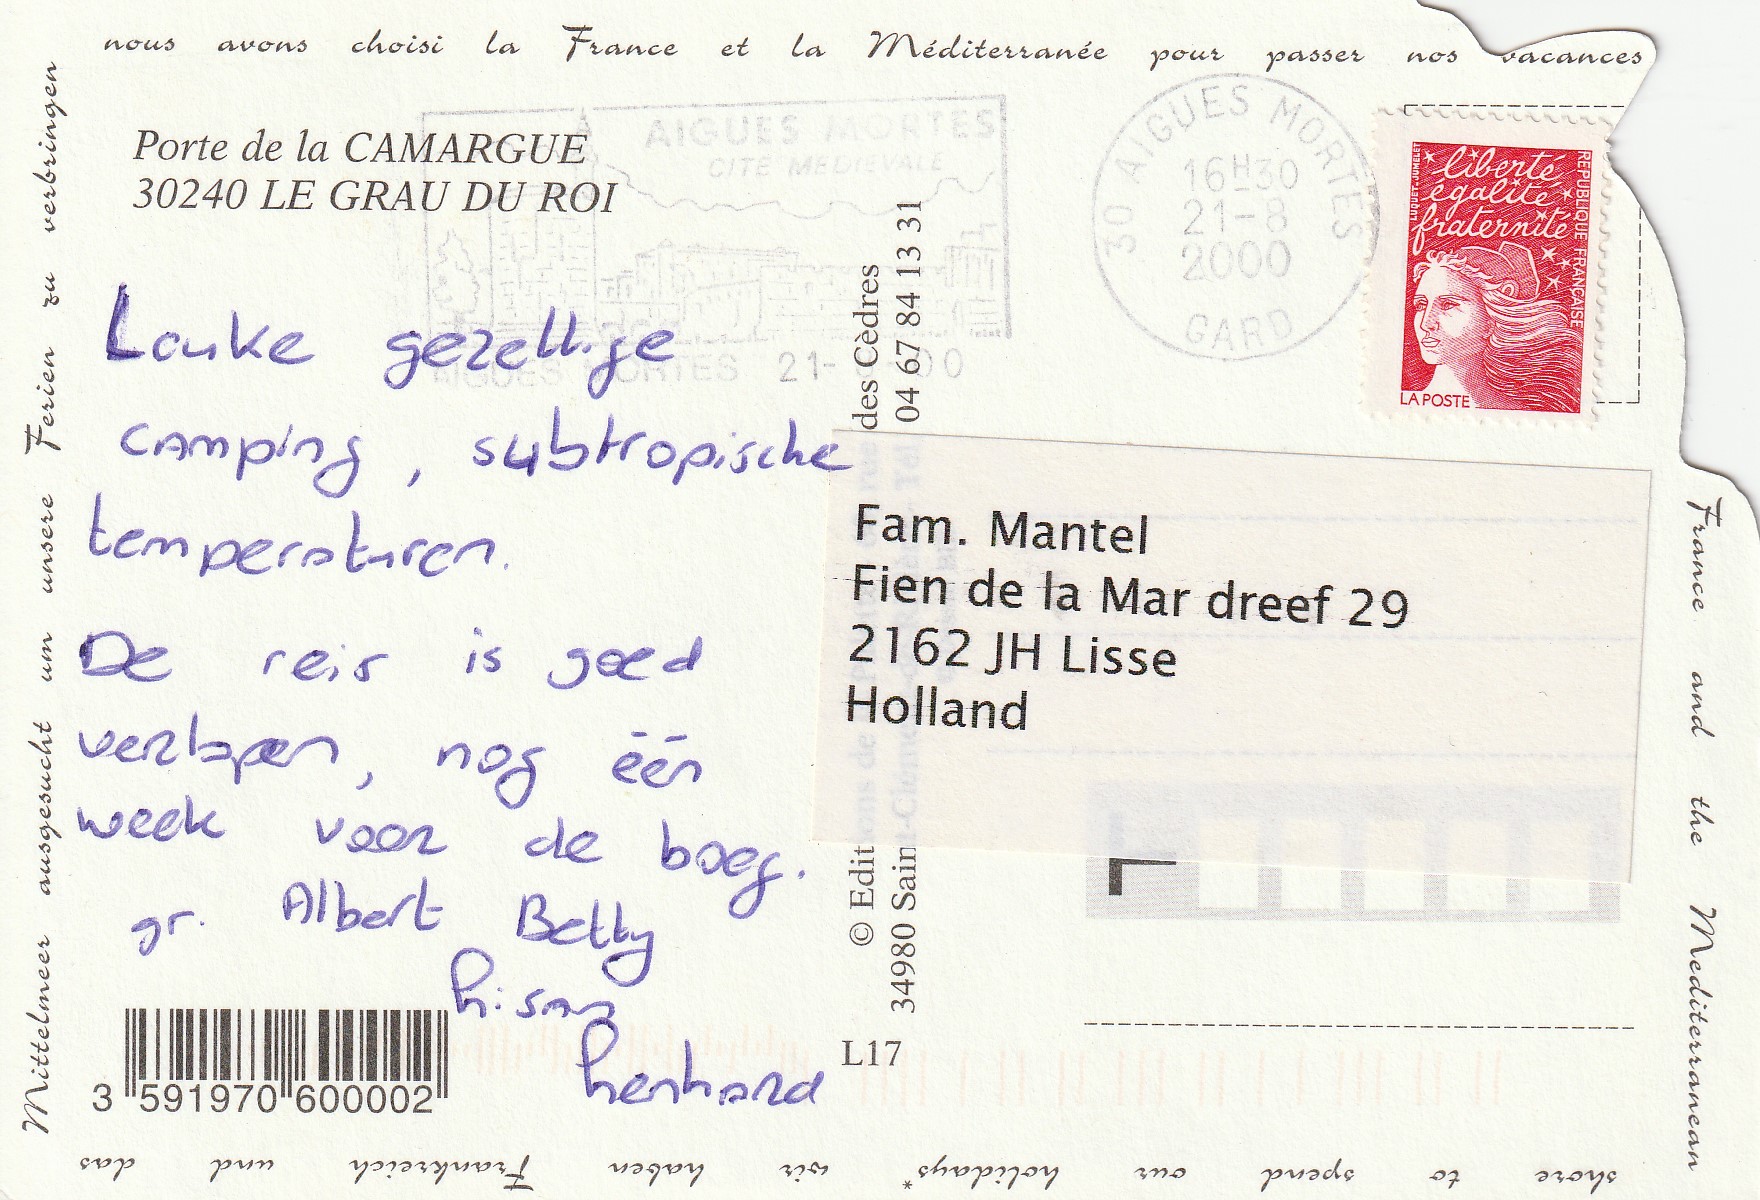 nous avons choisi la France et la Méditerranée pour passer nos vacances
Porte de la CAMARGUE
30240 LE GRAU DU ROI
AIGUES MORTES
CITE MEDIEVALE
AIGUES MORTES 21-
00
30 AIGUES MORTES
16H30
21-8
2000
GARD
liberté
égalité
fraternité
REPUBLIQUE FRANÇAISE
LUQUET-JUMELET
LA POSTE
Leuke gezellige
camping, subtropische
temperaturen.
De reis is goed
verlopen, nog één
week voor de boeg.
gr. Albert Betty
des Cèdres
04 67 84 13 31
© Edit
34980 Sain
Fam. Mantel
Fien de la Mar dreef 29
2162 JH Lisse
Holland
L17
3 591970 600002
France and the Mediterranean
shore to spend our holidays*
wir haben Frankreich und das
Mittelmeer ausgesucht um unsere Ferien zu verbringen